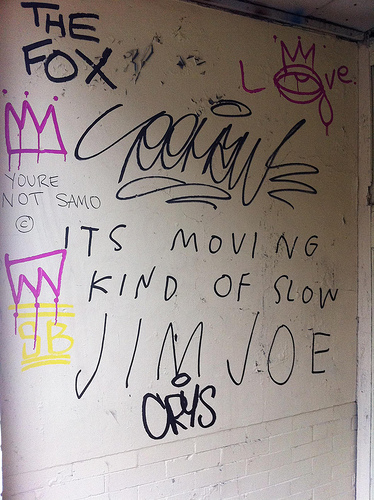 THE
FOX
LOve.
YOURE
NOT SAMO
©
ITS MOVING
KIND OF SLOW
SB
JIM JOE
CRYS